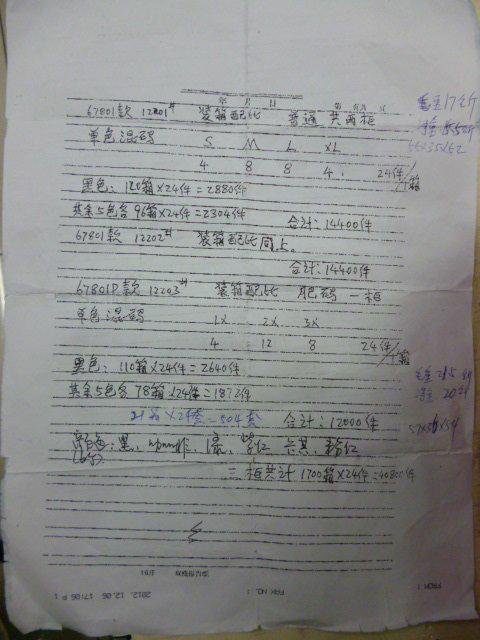 年 月 日 第 页共 页
67801款 12201# 装箱配比 普通 共两柜
毛重17公斤
单色混码 S M L XL
4 8 8 4 24件/1箱
黑色：120箱×24件=2880件
其余5色各96箱×24件=2304件 合计：14400件
67801款 12202# 装箱配比同上。
合计：14400件
67801P款 12203# 装箱配比 肥码 一柜
单色混码 1X 2X 3X
4 12 8 24件/1箱
黑色：110箱×24件=2640件
其余5色各78箱×24件=1872件
毛重21.5公斤
净重20公斤
21箱×24套=504套 合计：12000件
57×56×54
黑、
紫红、卡其、粉红
三柜共计1700箱×24件=40800件
FROM :
FAX NO. :
2012.12.06 17:06 P 1